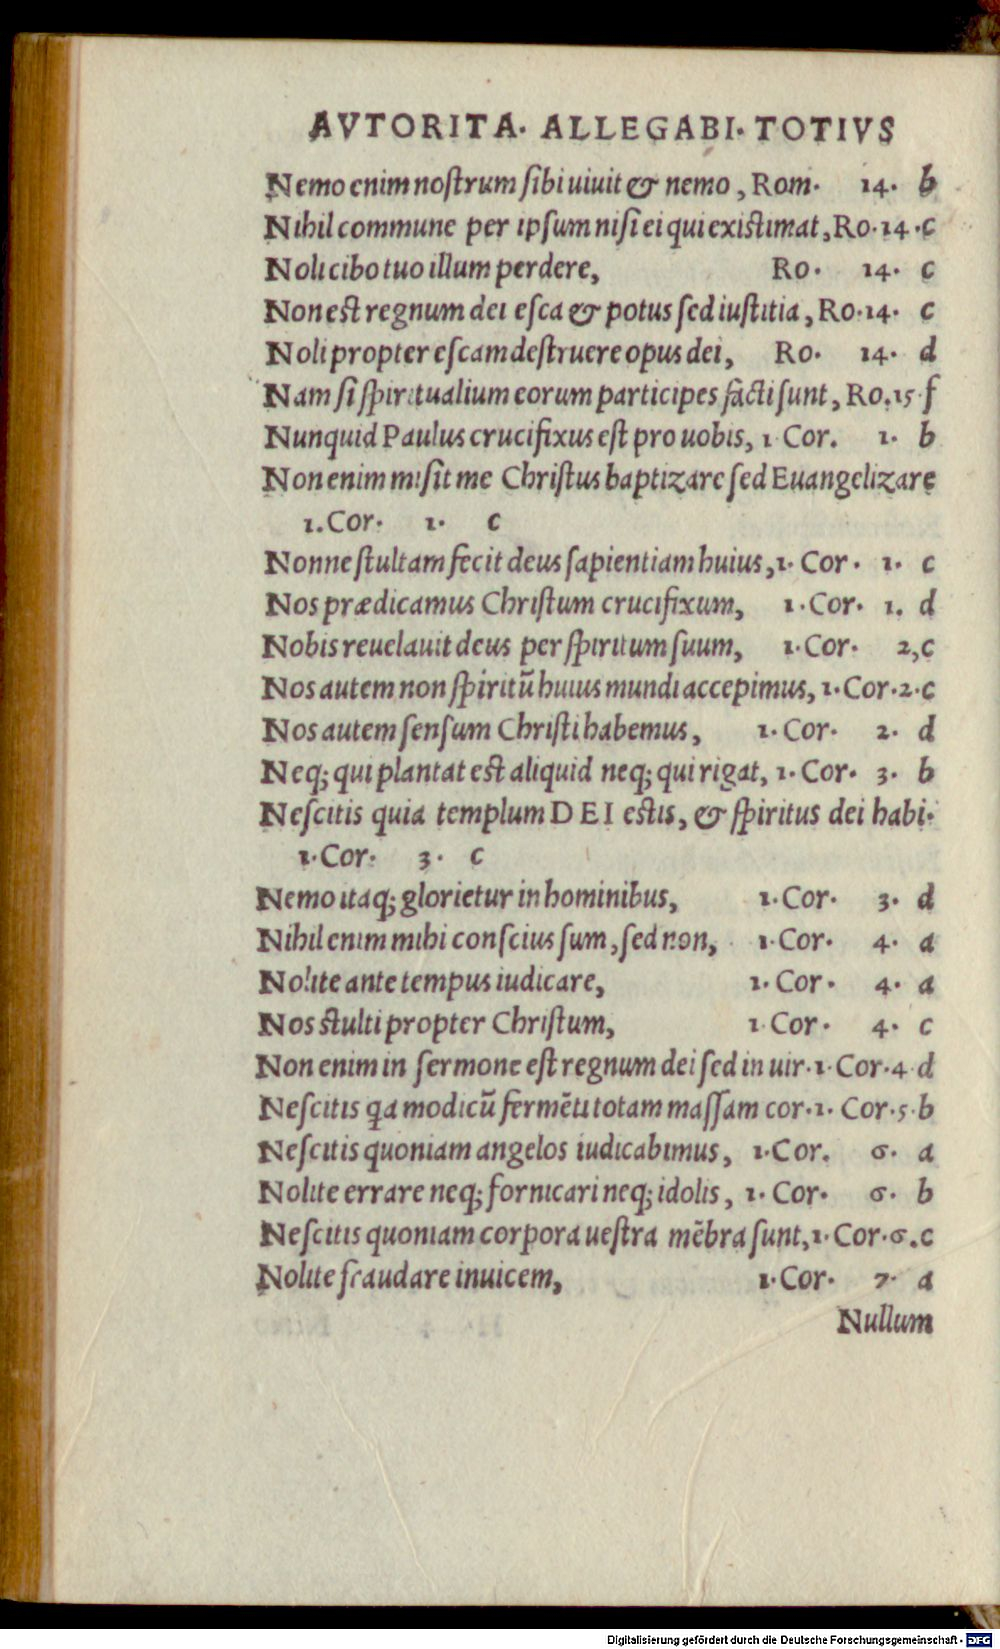 AVTORITA· ALLEGABI· TOTIVS
Nemo enim noſtrum ſibi uiuit & nemo, Rom· 14· b
Nihil commune per ipſum niſi ei qui existimat, Ro·14·c
Noli cibo tuo illum perdere, Ro· 14· c
Non est regnum dei eſca & potus ſed iuſtitia, Ro·14· c
Noli propter eſcam deſtruere opus dei, Ro· 14· d
Nam ſi ſpiritualium eorum participes facti ſunt, Ro.15·f
Nunquid Paulus crucifixus eſt pro uobis, 1·Cor. 1· b
Non enim miſit me Chriſtus baptizare ſed Euangelizare
1.Cor· 1· c
Nonne ſtultam fecit deus ſapientiam huius,1· Cor· 1· c
Nos prædicamus Chriſtum crucifixum, 1·Cor· 1. d
Nobis reuelauit deus per ſpiritum ſuum, 1·Cor· 2,c
Nos autem non ſpiritũ huius mundi accepimus, 1·Cor·2·c
Nos autem ſenſum Chriſti habemus, 1·Cor· 2· d
Neq; qui plantat est aliquid neq; qui rigat, 1·Cor· 3· b
Neſcitis quia templum DEI estis, & ſpiritus dei habi·
1·Cor· 3· c
Nemo itaq; glorietur in hominibus, 1·Cor· 3· d
Nihil enim mihi conſcius ſum, ſed non, 1·Cor· 4· a
Nolite ante tempus iudicare, 1·Cor· 4· a
Nos stulti propter Chriſtum, 1·Cor· 4· c
Non enim in ſermone eſt regnum dei ſed in uir·1·Cor·4·d
Neſcitis qa modicũ fermẽti totam maſſam cor·1· Cor·5·b
Neſcitis quoniam angelos iudicabimus, 1·Cor. 6· a
Nolite errare neq; fornicari neq; idolis, 1·Cor· 6· b
Neſcitis quoniam corpora ueſtra mẽbra ſunt,1·Cor·6.c
Nolite fraudare inuicem, 1·Cor· 7· a
Nullum
Digitalisierung gefördert durch die Deutsche Forschungsgemeinschaft - DFG